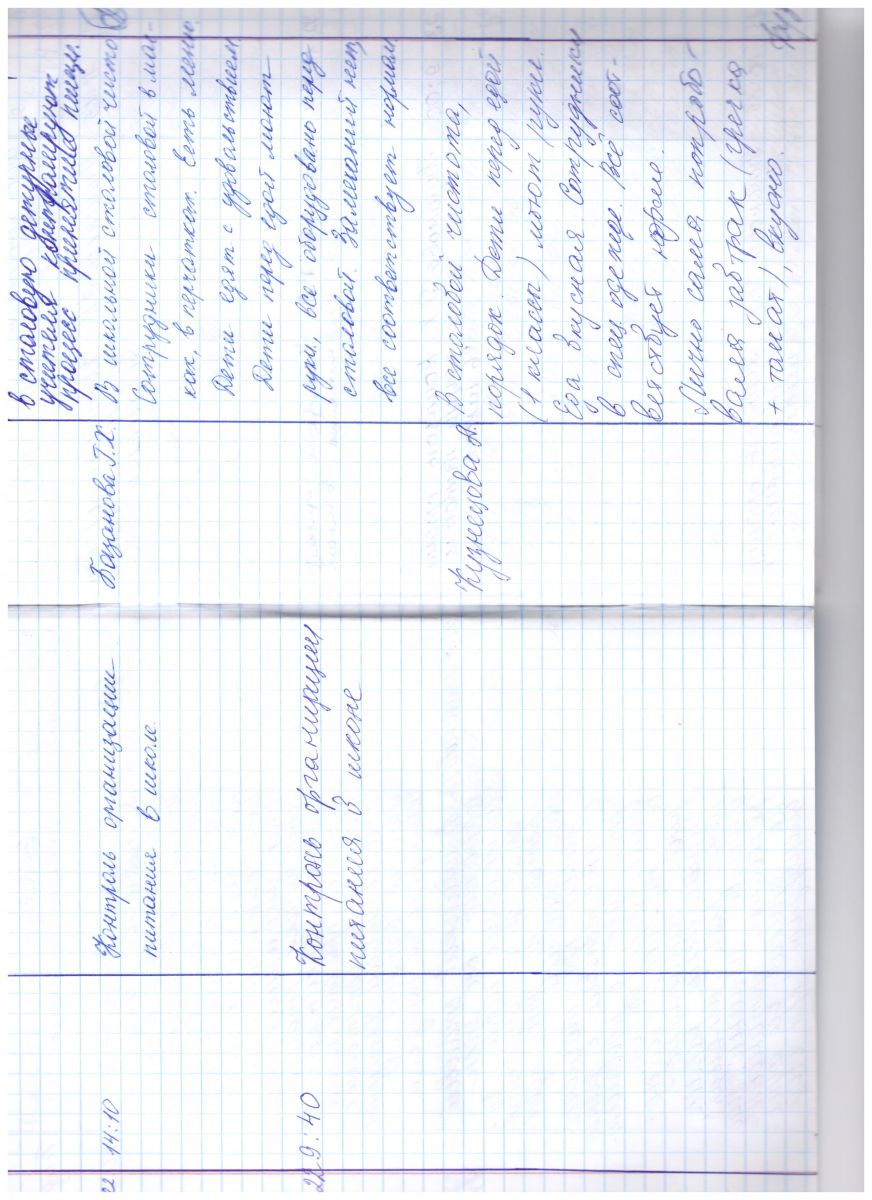 в столовую дежурные
учителя контролируют
процесс принятия пищи.
22 14:10
Контроль организации
питания в школе.
Базанова Г.Х.
В школьной столовой чисто
Сотрудники столовой в мас-
ках, в перчатках. Есть меню.
Дети едят с удовольствием.
Дети перед едой моют
руки, все оборудовано перед
столовой. Замечаний нет,
все соответствует нормам.
22 9:40
Контроль организации
питания в школе
Кузнецова А.
В столовой чистота,
порядок. Дети перед едой
(1 классы) моют руки.
Еда вкусная. Сотрудники
в спец одежде. Всё соот-
ветствует норме.
Лично сама попробо-
вала завтрак (гречка
+ томат), вкусно.